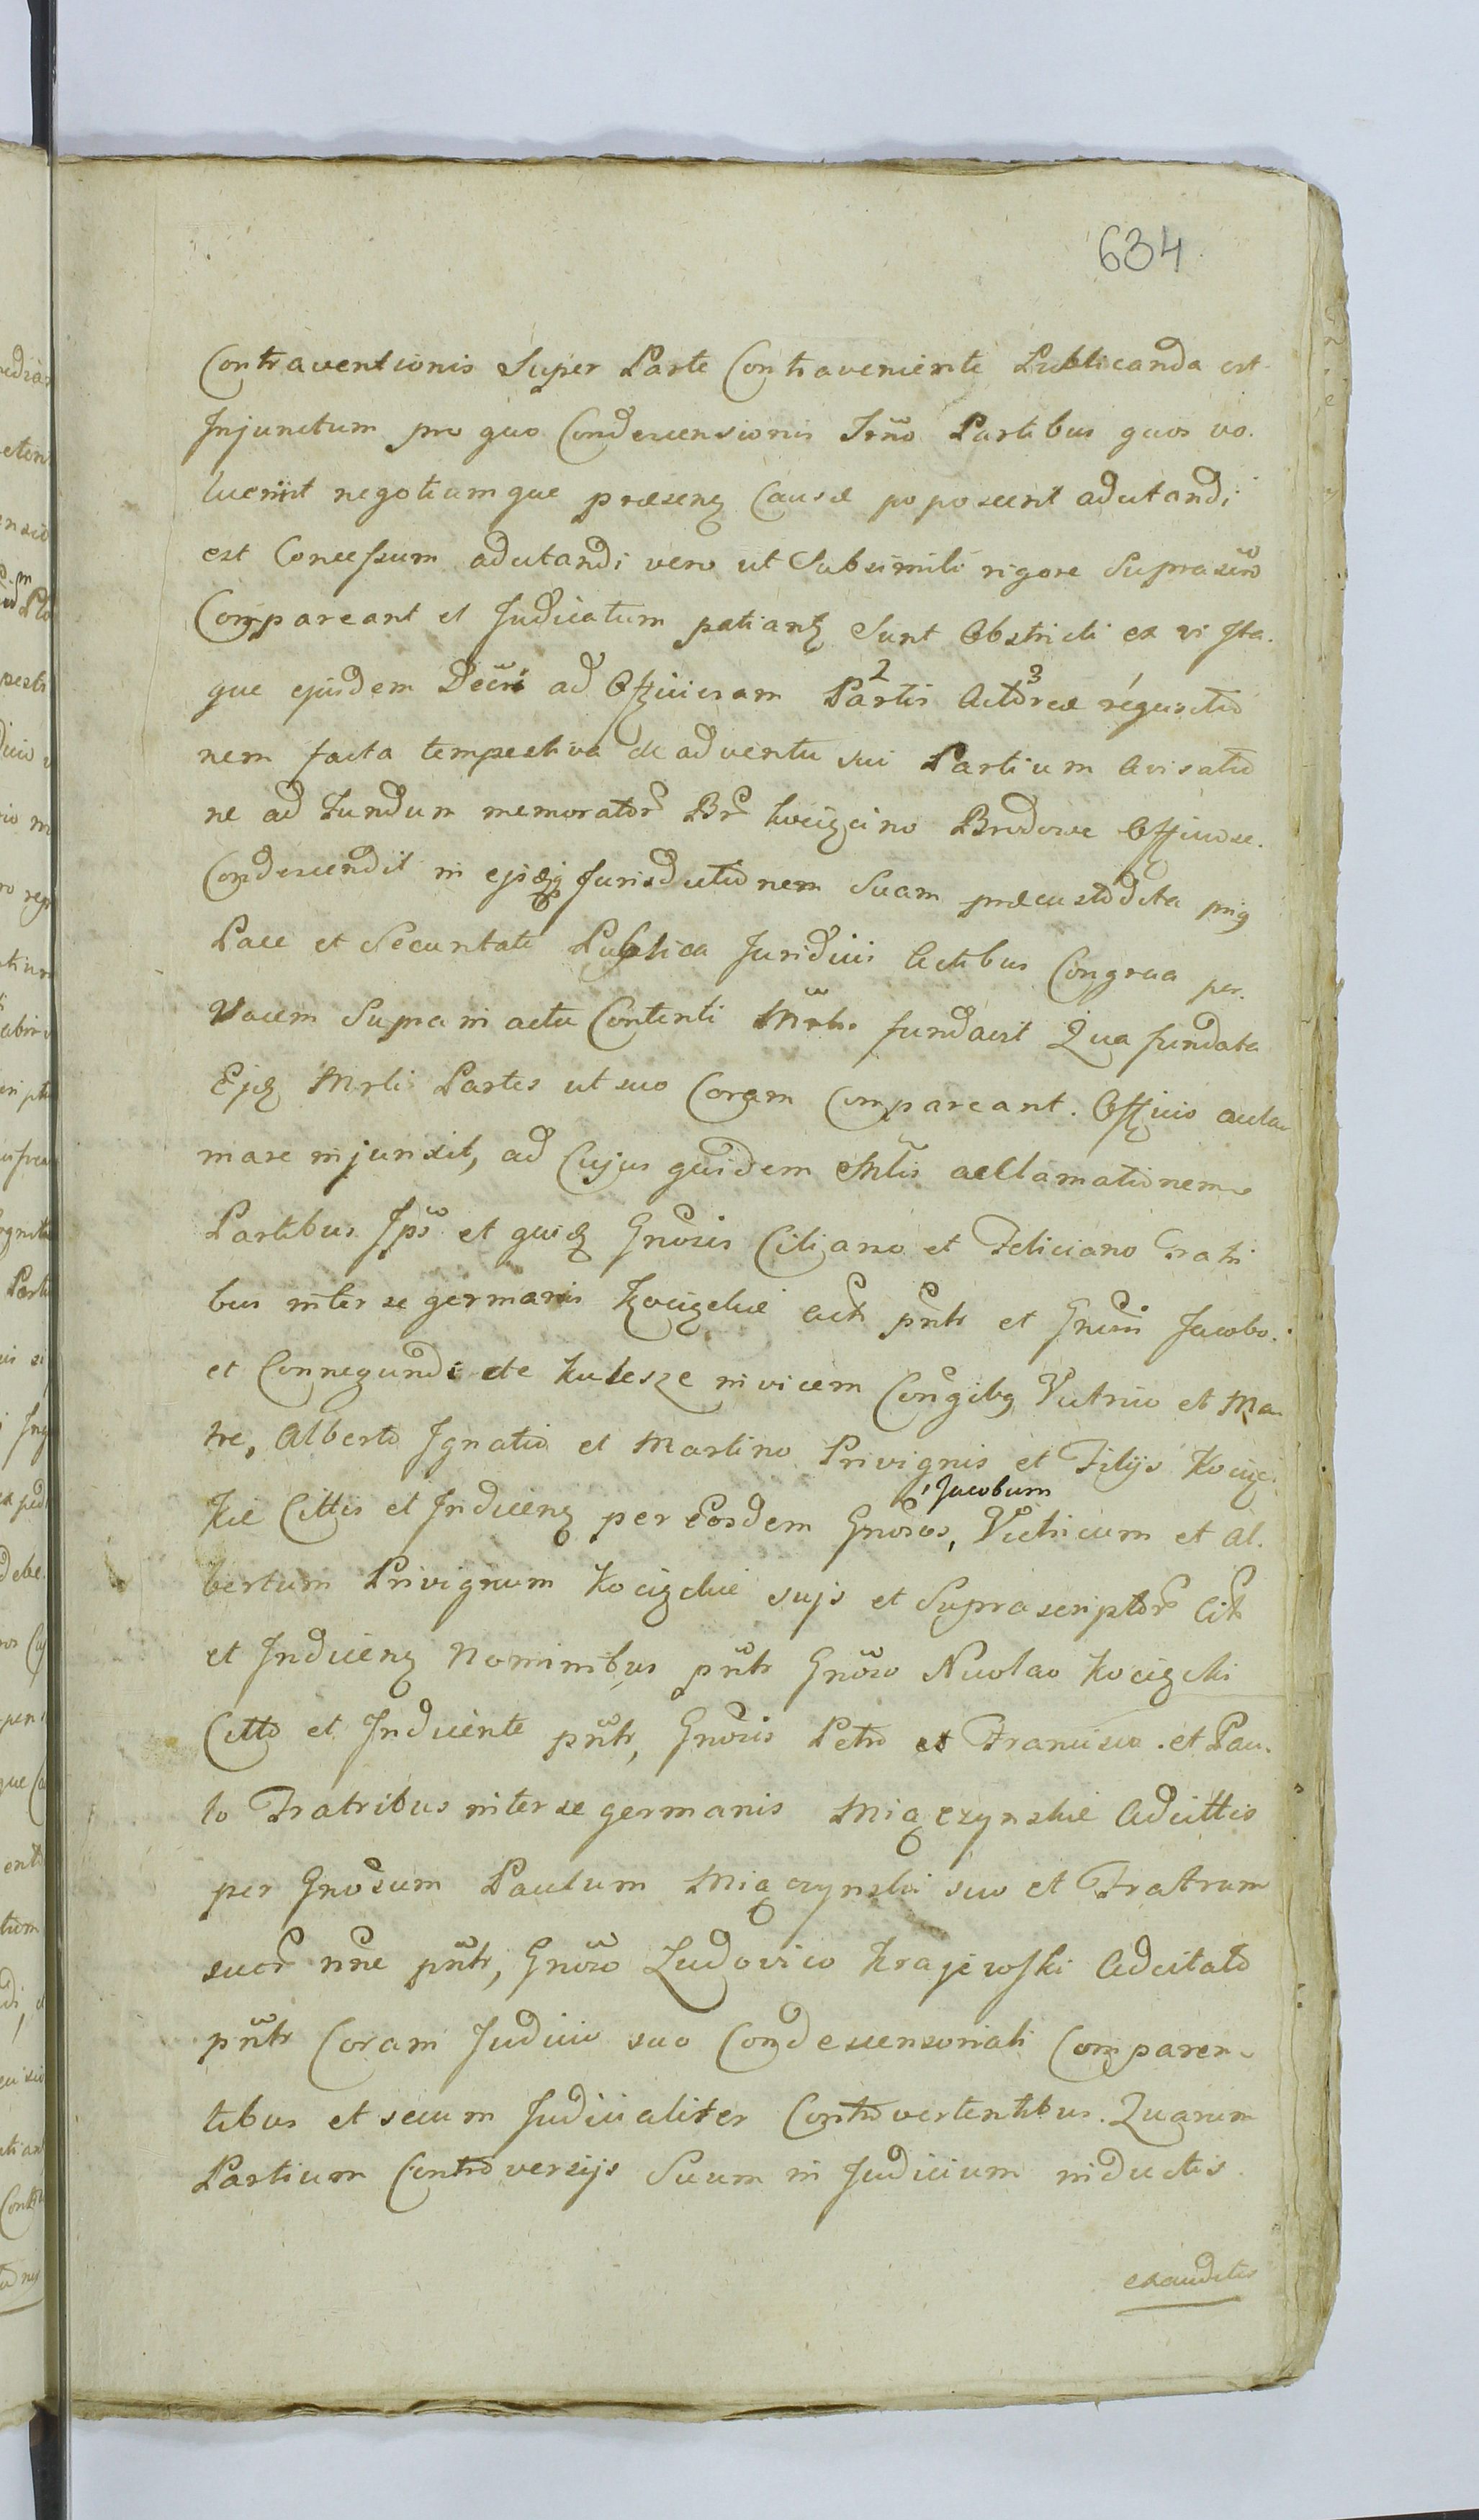 634
Contraventionis Super Parte Contraveniente Publicanda est
Injunctum pro quo Condescensionis Trno Partibus quos vo.
luerint negotiumque præsens Causæ poposcerit adcitandi
est Concessum adcitandi vero ut Subsimili rigore Suprascro
Compareant et Judicatum patiantz Sunt Obstricti ex vi Ita.
que ejusdem Decri ad Officiosam Partis 2 Actoreæ 3 requisitio
nem facta tempestiva de adventu sui Partium Avisatio
ne ad Fundum memorator Br Kocięcino Brodowe Officiose.
Condescendit in ejusq Jurisdictionem Suam præcustodita prius
Pace et Securitate Publica Juridicis Actibus Congrua per.
Vocem Supra in actu Contenti Mrlis fundavit Qua fundata
Ejq Mrlis Partes ut suo Coram Compareant. Officio accla
mare injunxit, ad Cujus quidem Mrlis acclamationem
Partibus Ipso et quidz Gnosis Ciliano et Feliciano Fratri
bus inter se germanis Kocięckie Actr pntr et Gnosis Jacobo.
et Connegundi de Kulesze invicem Congibg Vitrico et Ma
tre, Alberto Ignatio et Martino Privignis et Filijs Kocięc.
kie Cittis et Inducenz per Eosdem Gnosos, Jacobum Victricum et Al.
bertum Privignum Kocięckie sujs et Suprascriptor Citr
et Inducenz Nominibus pntr Gnoso Nicolao Kocięcki
Citto et Inducente pntr, Gnosis Petro et Francisco. et Pau.
lo Fratribus inter se germanis Miączynskie Adcittis
per Gnosum Paulum Miączynski suo et Fratrum
suor nne pntr, Gnoso Ludovico Krajewski Adcitato
pntr Coram Judicio suo Condescensoriali Comparen-
tibus et secum Judicialiter Controvertentibus. Quarum
Partium Controversijs Suum in Judicium inductis
exauditis